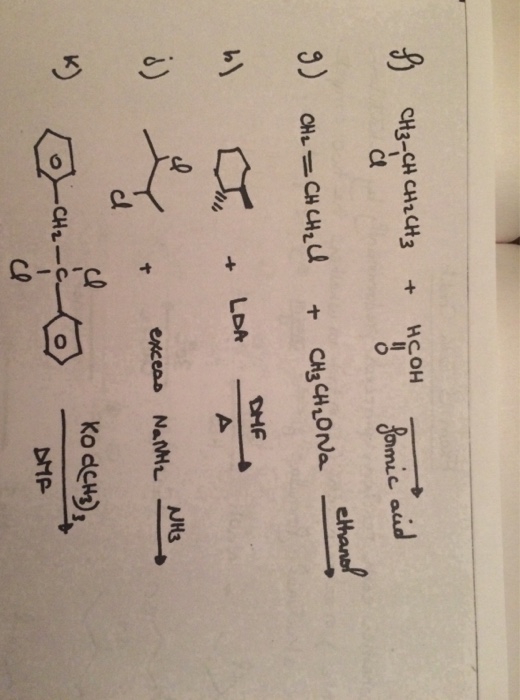 f) CH3-CHCH2CH3 + HCOH
Cl O formic acid
g) CH2=CHCH2Cl + CH3CH2ONa ethanol
h) + LDA DMF
Δ
j) Cl
Cl + excess NaNH2 NH3
K) -CH2-C- KOC(CH3)3
Cl Cl DMF